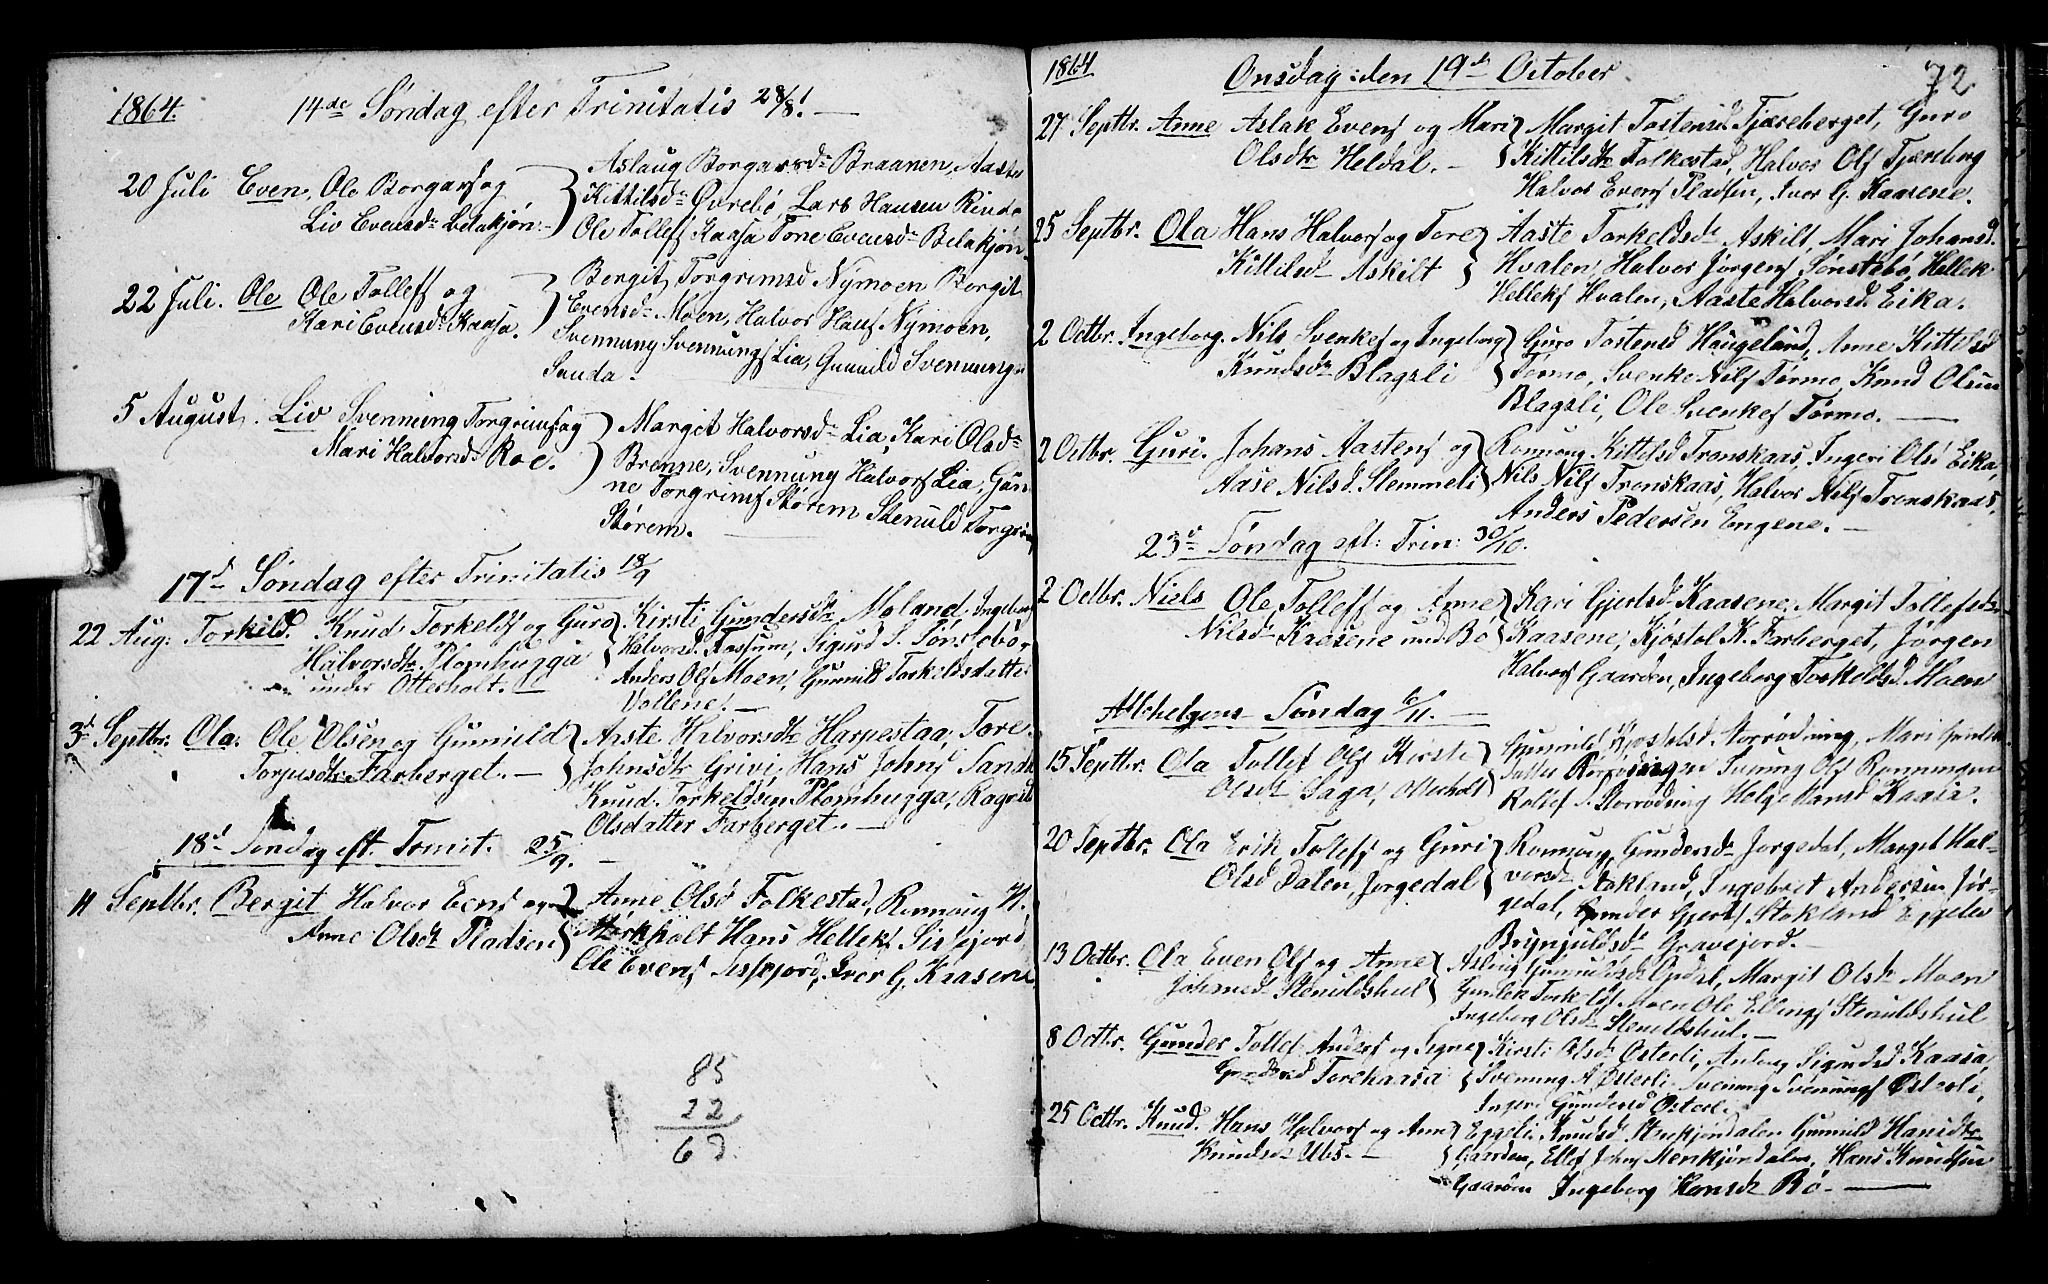 1864. 14de Søndag efter Trinitatis 28/8.
20 Juli Even, Ole Borgarsf og
Liv Evensdr Belakjøn.
Aslaug Borgarsdr Braanen, Aaste
Kittilsdr Øvrebø, Lars Hansen Rinde
Ole Tollefs Kaasa Tone Evensdr Belakjøn.
22 Juli. Ole Ole Tollefs og
Kari Evensdr Kaasa.
Bergit Torgrimsd Nymoen Borgit
Evensdr Moen, Halvor Hansf Nymoen,
Svennung Svennungs Lia, Gunnild Svennungs
Sauda.
5 August. Liv Svennung Torgrimsf og
Mari Halvorsdr Roe.
Margit Halvorsdr Lia, Kari Olsdr
Brenne, Svennung Halvors Lia, Gun-
ne Torgrims Størem Stenuld Torgrim
Størem.
17d Søndag efter Trinitatis 18/9
22 Aug: Torkild. Knud Torkelds og Guro
Halvorsdtr Plomhugga
under Otterholt.
Kirsti Gundersdtr Moland, Ingeborg
Halvorsd. Fossum, Sigurd S. Sønstebø,
Anders Ols Moen, Gunnild Torkeldsdatter
Vollene.
3d Septbr. Ola. Ole Olsen og Gunnild
Torjusdtr Farberget.
Aaste Halvorsdtr Harpestaa, Tore
Johnsdtr Grivi, Hans Johns Sande
Knud Torkeldsen Plomhugga, Ragnild
Olsdatter Farberget.
18d Søndag eft. Trinit. 25/9.
11 Septbr. Bergit Halvor Evens og
Anne Olsdtr Pladsen
Anne Olsd Folkestad, Ronnoug H.
Mørkholt Hans Hellek Sisjord
Ole Evens Sisjord, Iver G. Kaasene
85
22
63
1864 Onsdag den 19d October 72.
27 Septbr. Anne Aslak Evens og Mari
Olsdtr Heldal.
Margit Tostensd. Tjæreberget, Guro
Kittilsdtr Folkestad, Halvor Ols Tjæreberg
Halvor Evens Pladsen, Iver G. Kaasene.
25 Septbr. Ola Hans Halvors og Tore
Kittilsdr Askilt
Aaste Torkeldsdr Askilt, Mari Johansd.
Hvalen, Halvor Jørgens Sønstebø, Hellek
Helleks Hvalen, Aaste Halvorsd. Eika.
2 Octbr. Ingeborg. Nils Svenkes og Ingeborg
Knudsdtr Blagsli
Guro Tostensd Haugeland, Anne Kittilsd
Tørmo, Svenke Nils Tørmo, Knud Olsen
Blagsli, Ole Svenkes Tørmo.
2 Octbr. Guri. Johans Aastens og
Aase Nilsd. Stemmeli
Ronnoug Kittilsd Trenskaas, Ingeri Olsd Eika,
Nils Nils Trenskaas, Halvor Nils Trenskaas,
Anders Pedersen Engene.
23d Søndag eft: Trin: 30/10.
2 Octbr. Niels Ole Tollefs og Anne
Nilsdr Kaasene und. Bø
Kari Gjertsd. Kaasene, Margit Tollefsdr
Kaasene, Kjøstol K. Farberget, Jørgen
Halvors Gaarden, Ingeborg Torkeldsd. Moen
Allehelgens Søndag 6/11.
15 Septbr. Ola Tollef Ols Kirste
Olsdtr Saga, Otterholt
Gunnild Kjøstolsd. Norrødning, Mari
Svenung Ols Rønningen
Rollef S. Norrødning Helge Hansd Kaasa.
20 Septbr. Ola Erik Tollefs og Guri
Olsd Dalen, Jørgedal
Ronnoug Gundersdr Jørgedal, Margit Hal-
vorsdr Stokland, Ingebret Andersen Jør-
gedal, Gunder Gjerts. Stokland
Brynjuldsdr Gravejord.
13 Octbr. Ola Even Ols og Anne
Johnsdr Stenuldshul
Aslaug Gunnuldsdtr Opdal, Margit Olsdtr Moen
Gunlek Torkelds Moen Ole Ellings Stenuldshul
Ingeborg Olsdr Stenuldshul.
8 Octbr. Gunder Tollef Anders og Signe
Gundersd Torekaasa
Kirsti Olsdr Østerli, Sigurdsd Kaasa
Svenung A. Østerli Svenung Svenungs Østerli,
Ingeri Gundersd Østerli
25 Octbr. Knud. Hans Halvors og Anne
Knudsdr Ubs.
Eggeli Knudsd. Gunnuld Hansdtr
Gaarden, Ellef Johns Hans Knudsen
Gaarden Ingeborg Hansdr Bø.